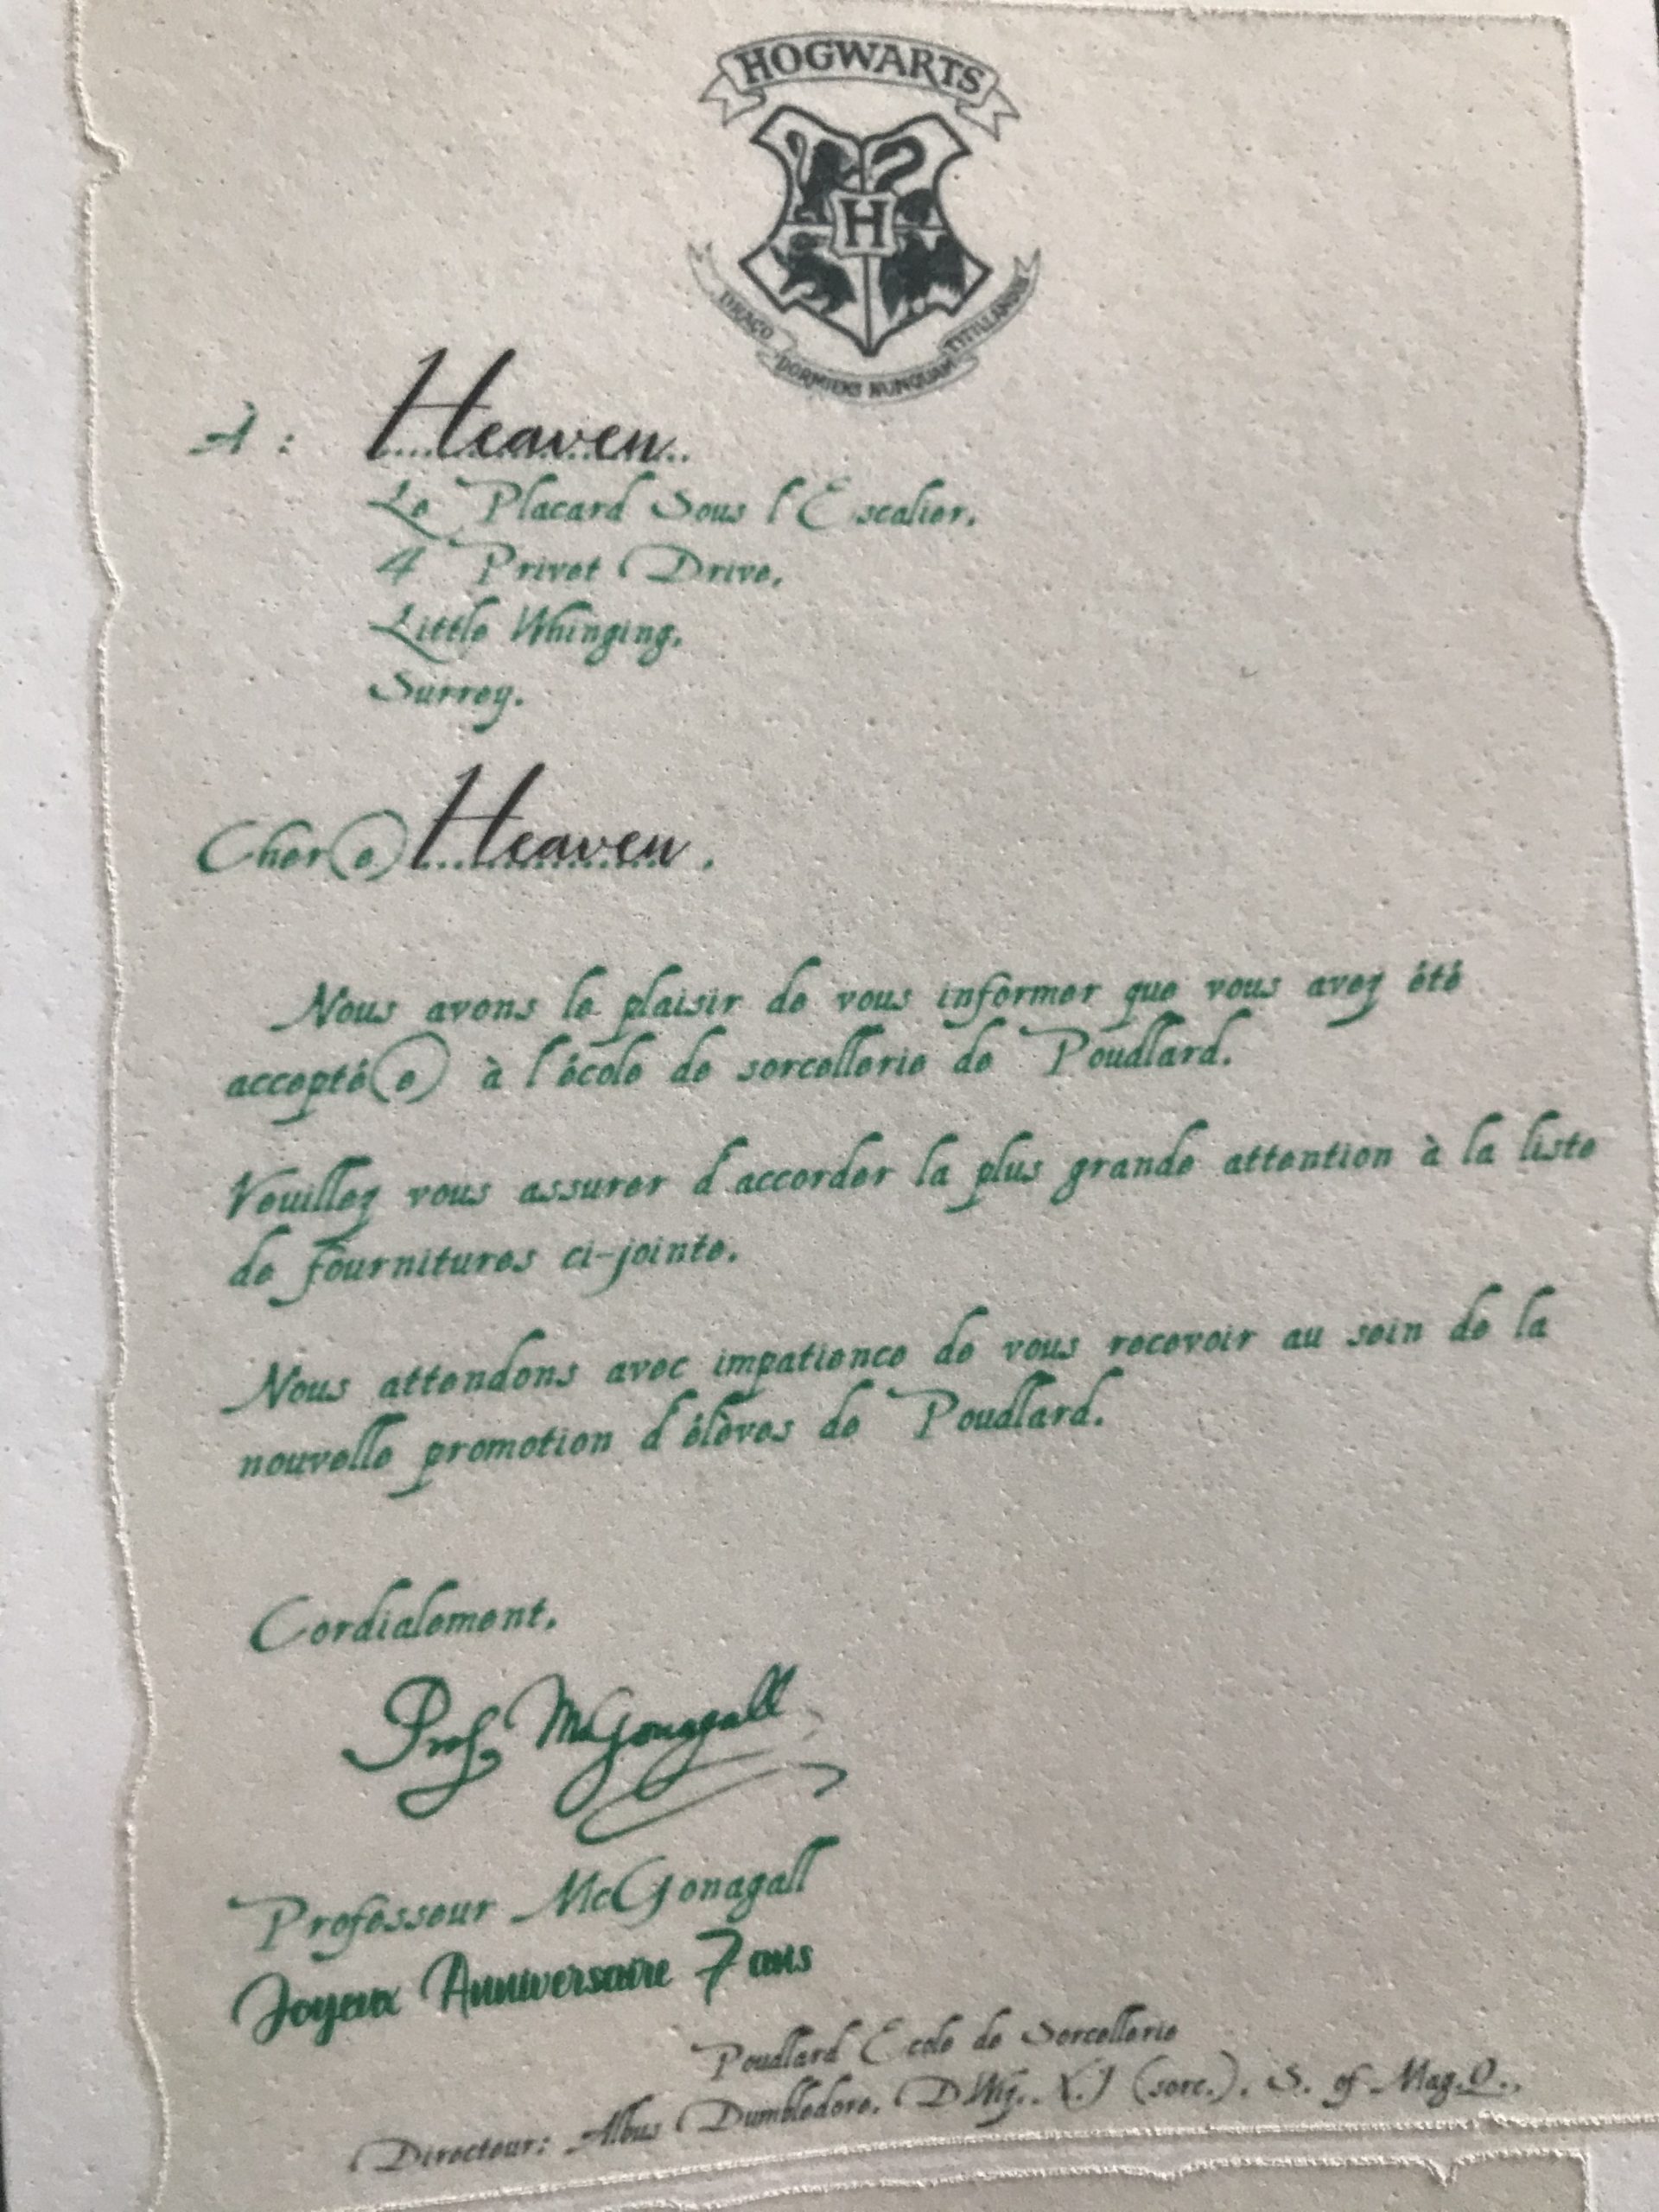 HOGWARTS
H
DRACO DORMIENS NUNQUAM TITILLANDUS
À : Heaven
Le Placard Sous l'Escalier,
4 Privet Drive,
Little Whinging,
Surrey.
Cher(e) Heaven,
Nous avons le plaisir de vous informer que vous avez été
accepté(e) à l'école de sorcellerie de Poudlard.
Veuillez vous assurer d'accorder la plus grande attention à la liste
de fournitures ci-jointe.
Nous attendons avec impatience de vous recevoir au sein de la
nouvelle promotion d'élèves de Poudlard.
Cordialement,
Prof. McGonagall
Professeur McGonagall
Joyeux Anniversaire 7 ans
Poudlard Ecole de Sorcellerie
Directeur: Albus Dumbledore, D.Wiz., X.J (sorc.), S. of Mag.Q.,